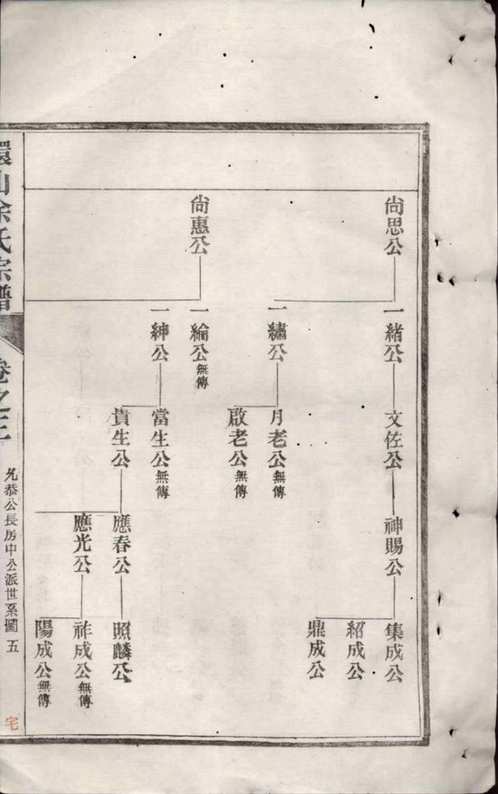 尙思公
一緒公
文佐公
神賜公
集成公
紹成公
鼎成公
一繡公
月老公無傳
啟老公無傳
尙惠公
一綸公無傳
一紳公
當生公無傳
貴生公
應春公
照麟公
應光公
祥成公無傳
陽成公無傳
環山余氏宗譜
卷之三
允恭公長房中公派世系圖 五
宅